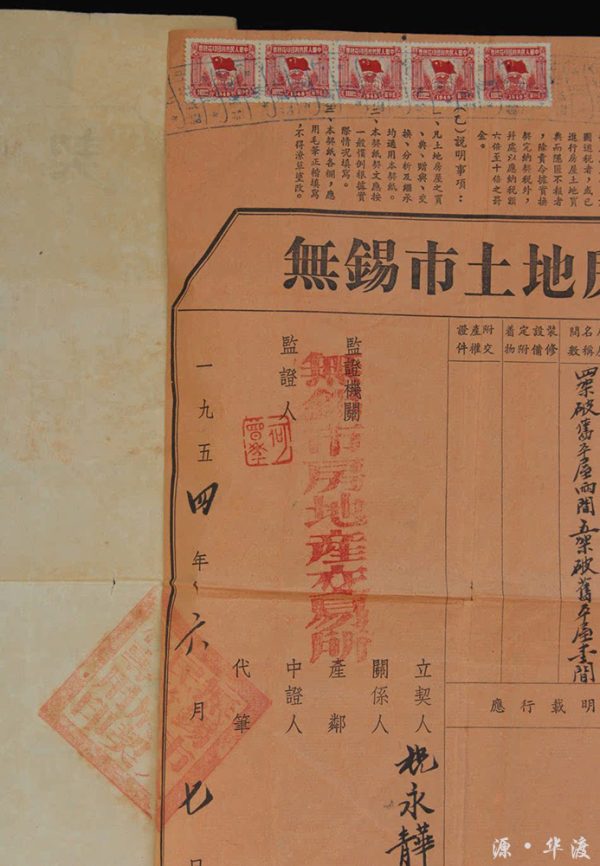 中華人民共和國印花稅票
中華人民共和國印花稅票
中華人民共和國印花稅票
中華人民共和國印花稅票
中華人民共和國印花稅票
圖逃稅者，或已
進行房屋土地買
典而隱匿不報者
，除責令據實換
契完納契稅外，
幷處以應納稅額
六倍至十倍之罸
金。
(乙)說明事項：
一、凡土地房屋之買
、典、贈與、交
換、分析及繼承
均適用本契紙。
二、本契紙契文應按
一般慣例根據實
際情况填寫。
三、本契紙各欄，應
用毛筆正楷填寫
，不得潦草塗改。
無錫市土地房
名稱
間數
四架破舊平屋兩間五架破舊平屋壹間
裝修設備
定附着物
附交產權證件
明載行應
監證機關
無錫市房地產交易所
監證人
立契人
祝永華
青
關係人
產鄰
中證人
代筆
一九五四年六月七日
源·华渡